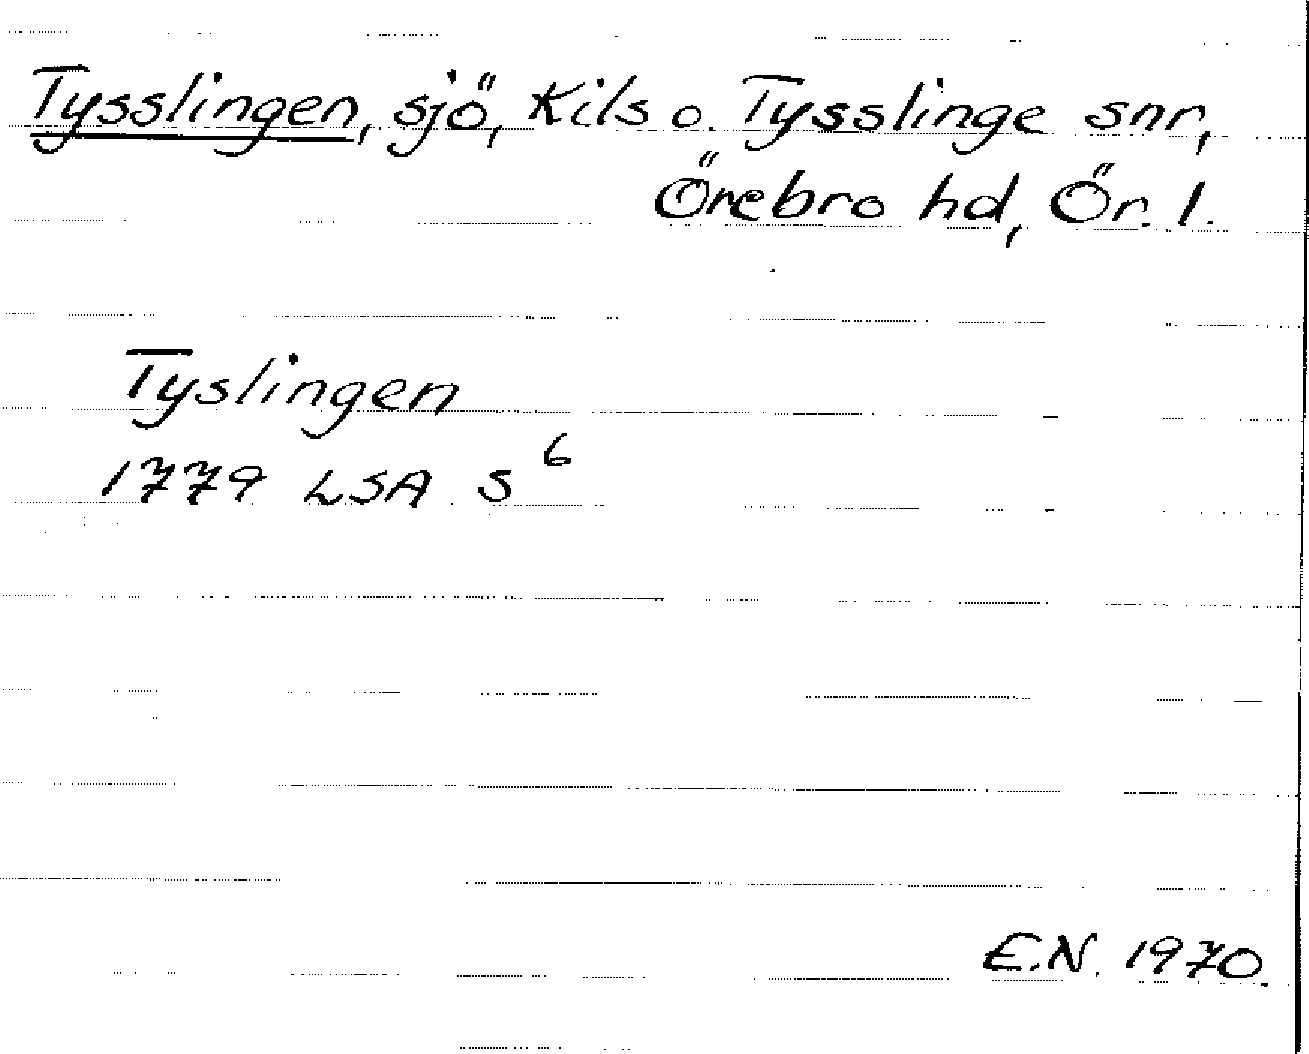 Tysslingen, sjö, Kils o. Tysslinge snr,
Örebro hd, Ör. l.
Tyslingen
1779 LSA S 6
E.N. 1970.